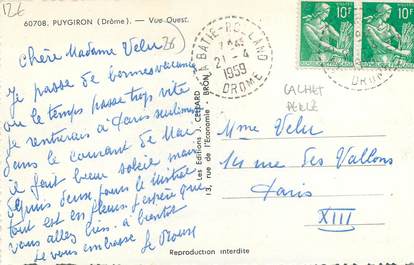 12€
60708. PUYGIRON (Drôme). — Vue Ouest.
26
Chère Madame Velu
Je passe de bonnes vacances
ou le temps passe trop vite
je rentrerais à Paris seulement
dans le courant de Mai
il fait beau soleil mais
depuis deux jours le mistral
tout est en fleurs. J'espère que
vous allez bien. à bientôt
Je vous embrasse
Les Editions J. CELLARD - BRON
13, rue de l'Economie
LA BATIE-ROLLAND
21-4
1959
DROME
10F
10F
CACHET
PERLÉ
Mme Velu
rue des Vallons
Paris
XIII
Reproduction interdite